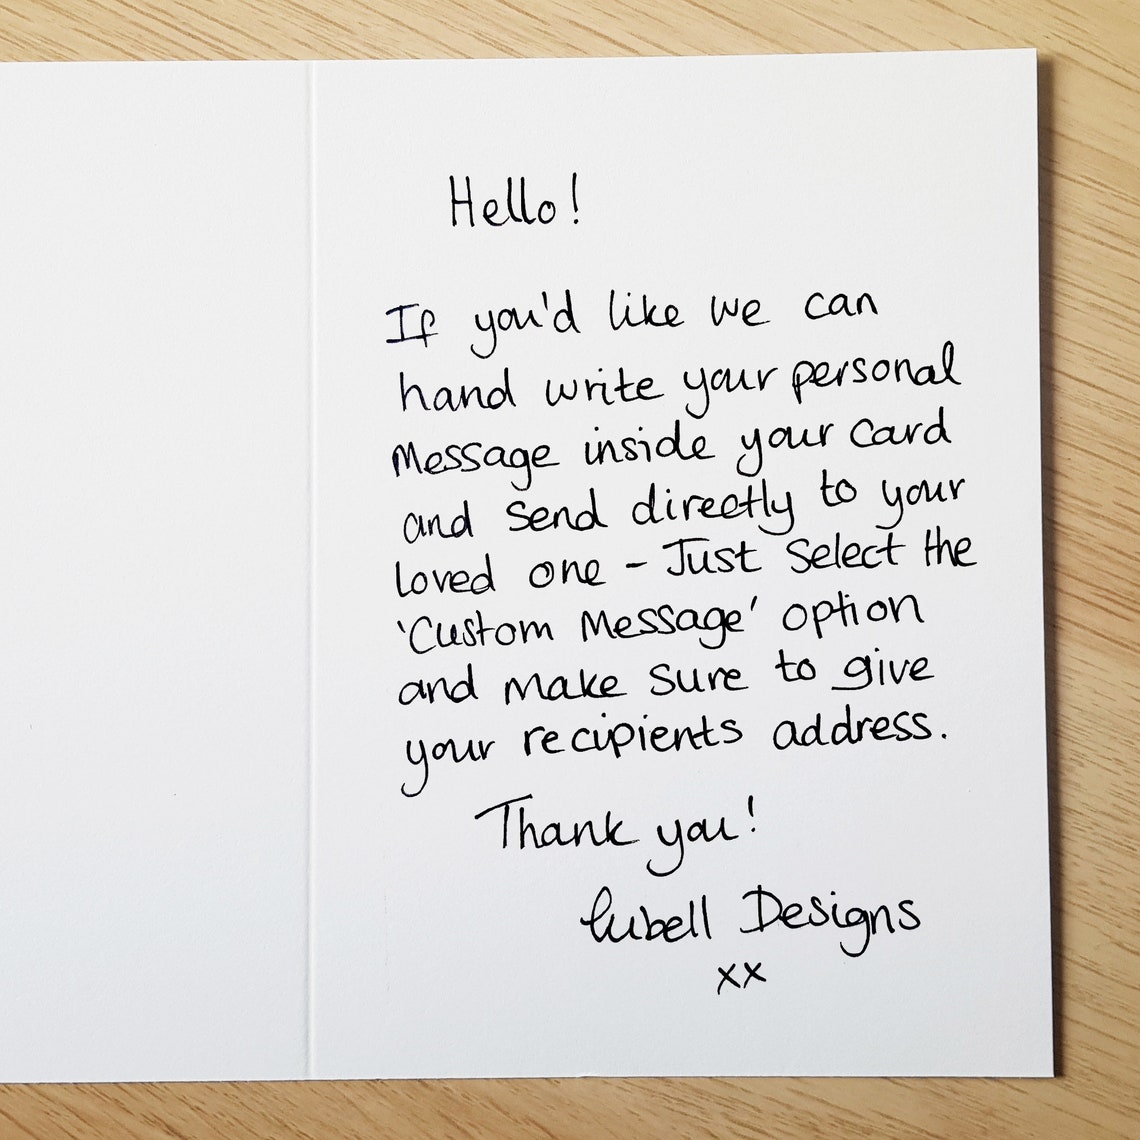 Hello!
If you'd like we can
hand write your personal
Message inside your card
and Send directly to your
loved one - Just Select the
'Custom Message' option
and make Sure to give
your recipients address.
Thank you!
Lubell Designs
xx